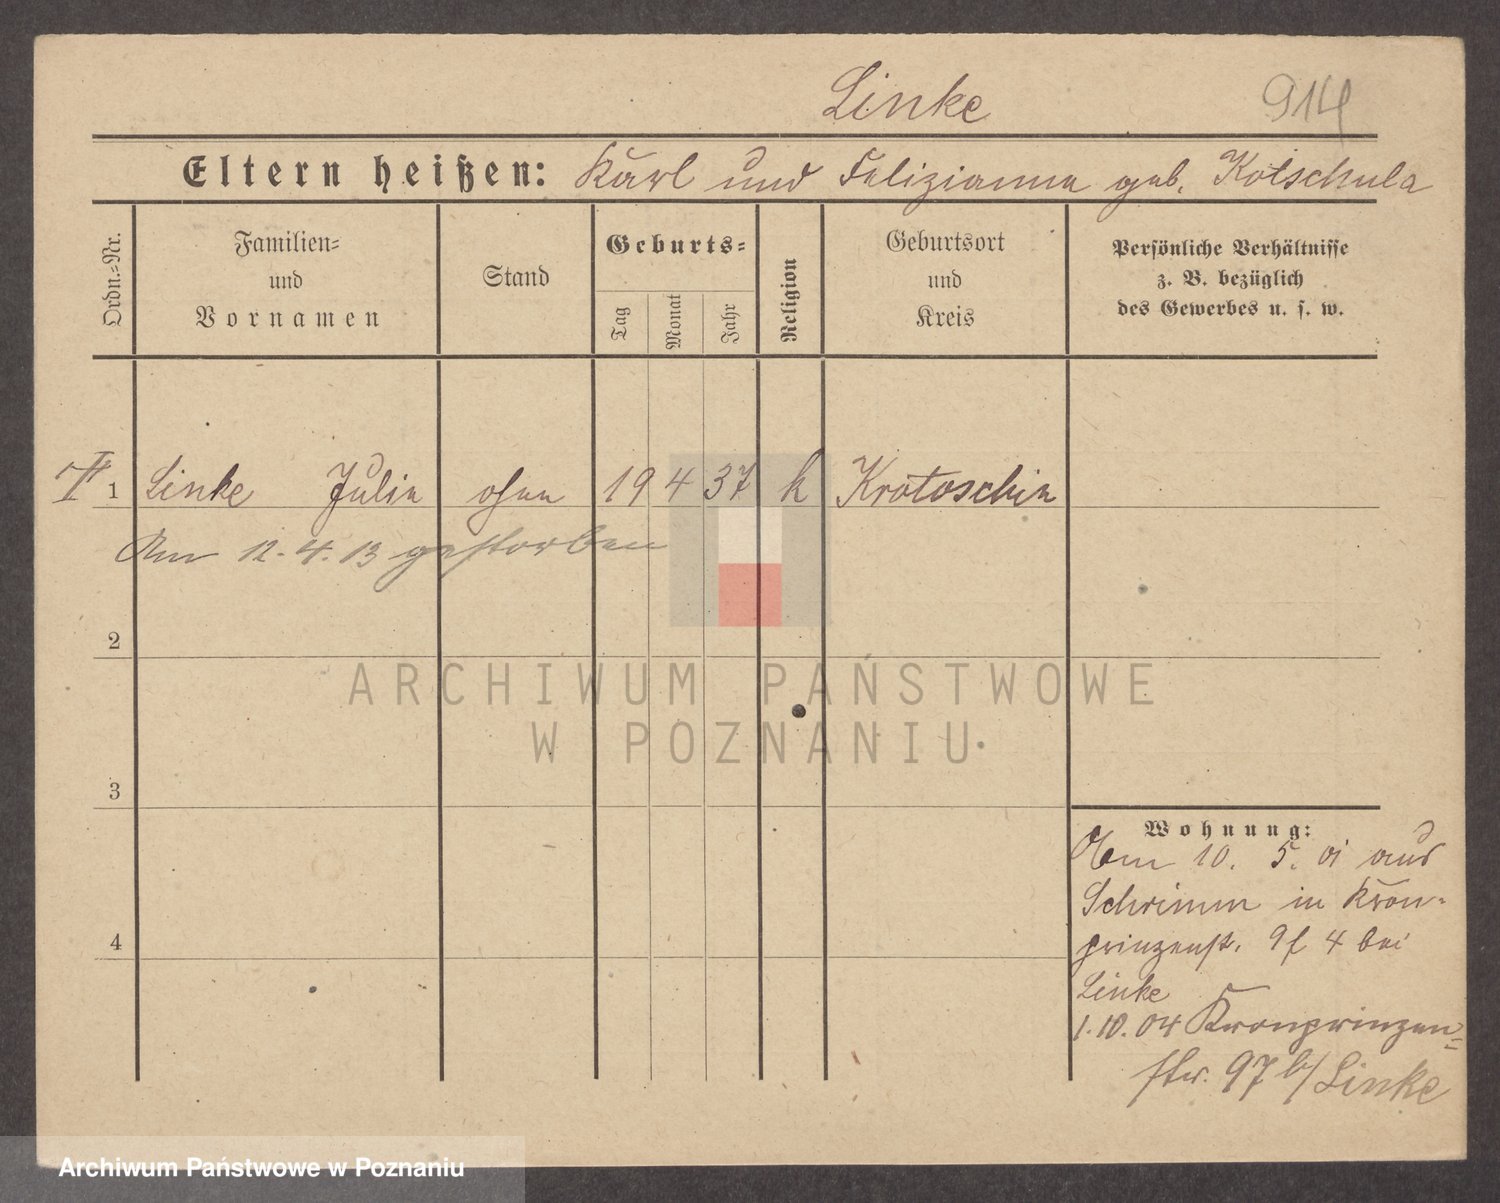 Linke 914
Eltern heißen: Karl und Felizianna geb. Kotschula
Ordn.-Nr.
Familien-
und
Vornamen
Stand
Geburts-
Tag
Monat
Jahr
Religion
Geburtsort
und
Kreis
Persönliche Verhältnisse
z. B. bezüglich
des Gewerbes u. s. w.
1 Linke Julie ohne 19 4 37 k Krotoschin
Am 12.4.13 gestorben
2
3
4
Wohnung:
Am 10. 5. 01 aus
Schrimm in Kron-
prinzenst. 4 bei
Linke
1.10.04 Kronprinzen-
str. 97 b/ Linke
ARCHIWUM PAŃSTWOWE
W POZNANIU
Archiwum Państwowe w Poznaniu